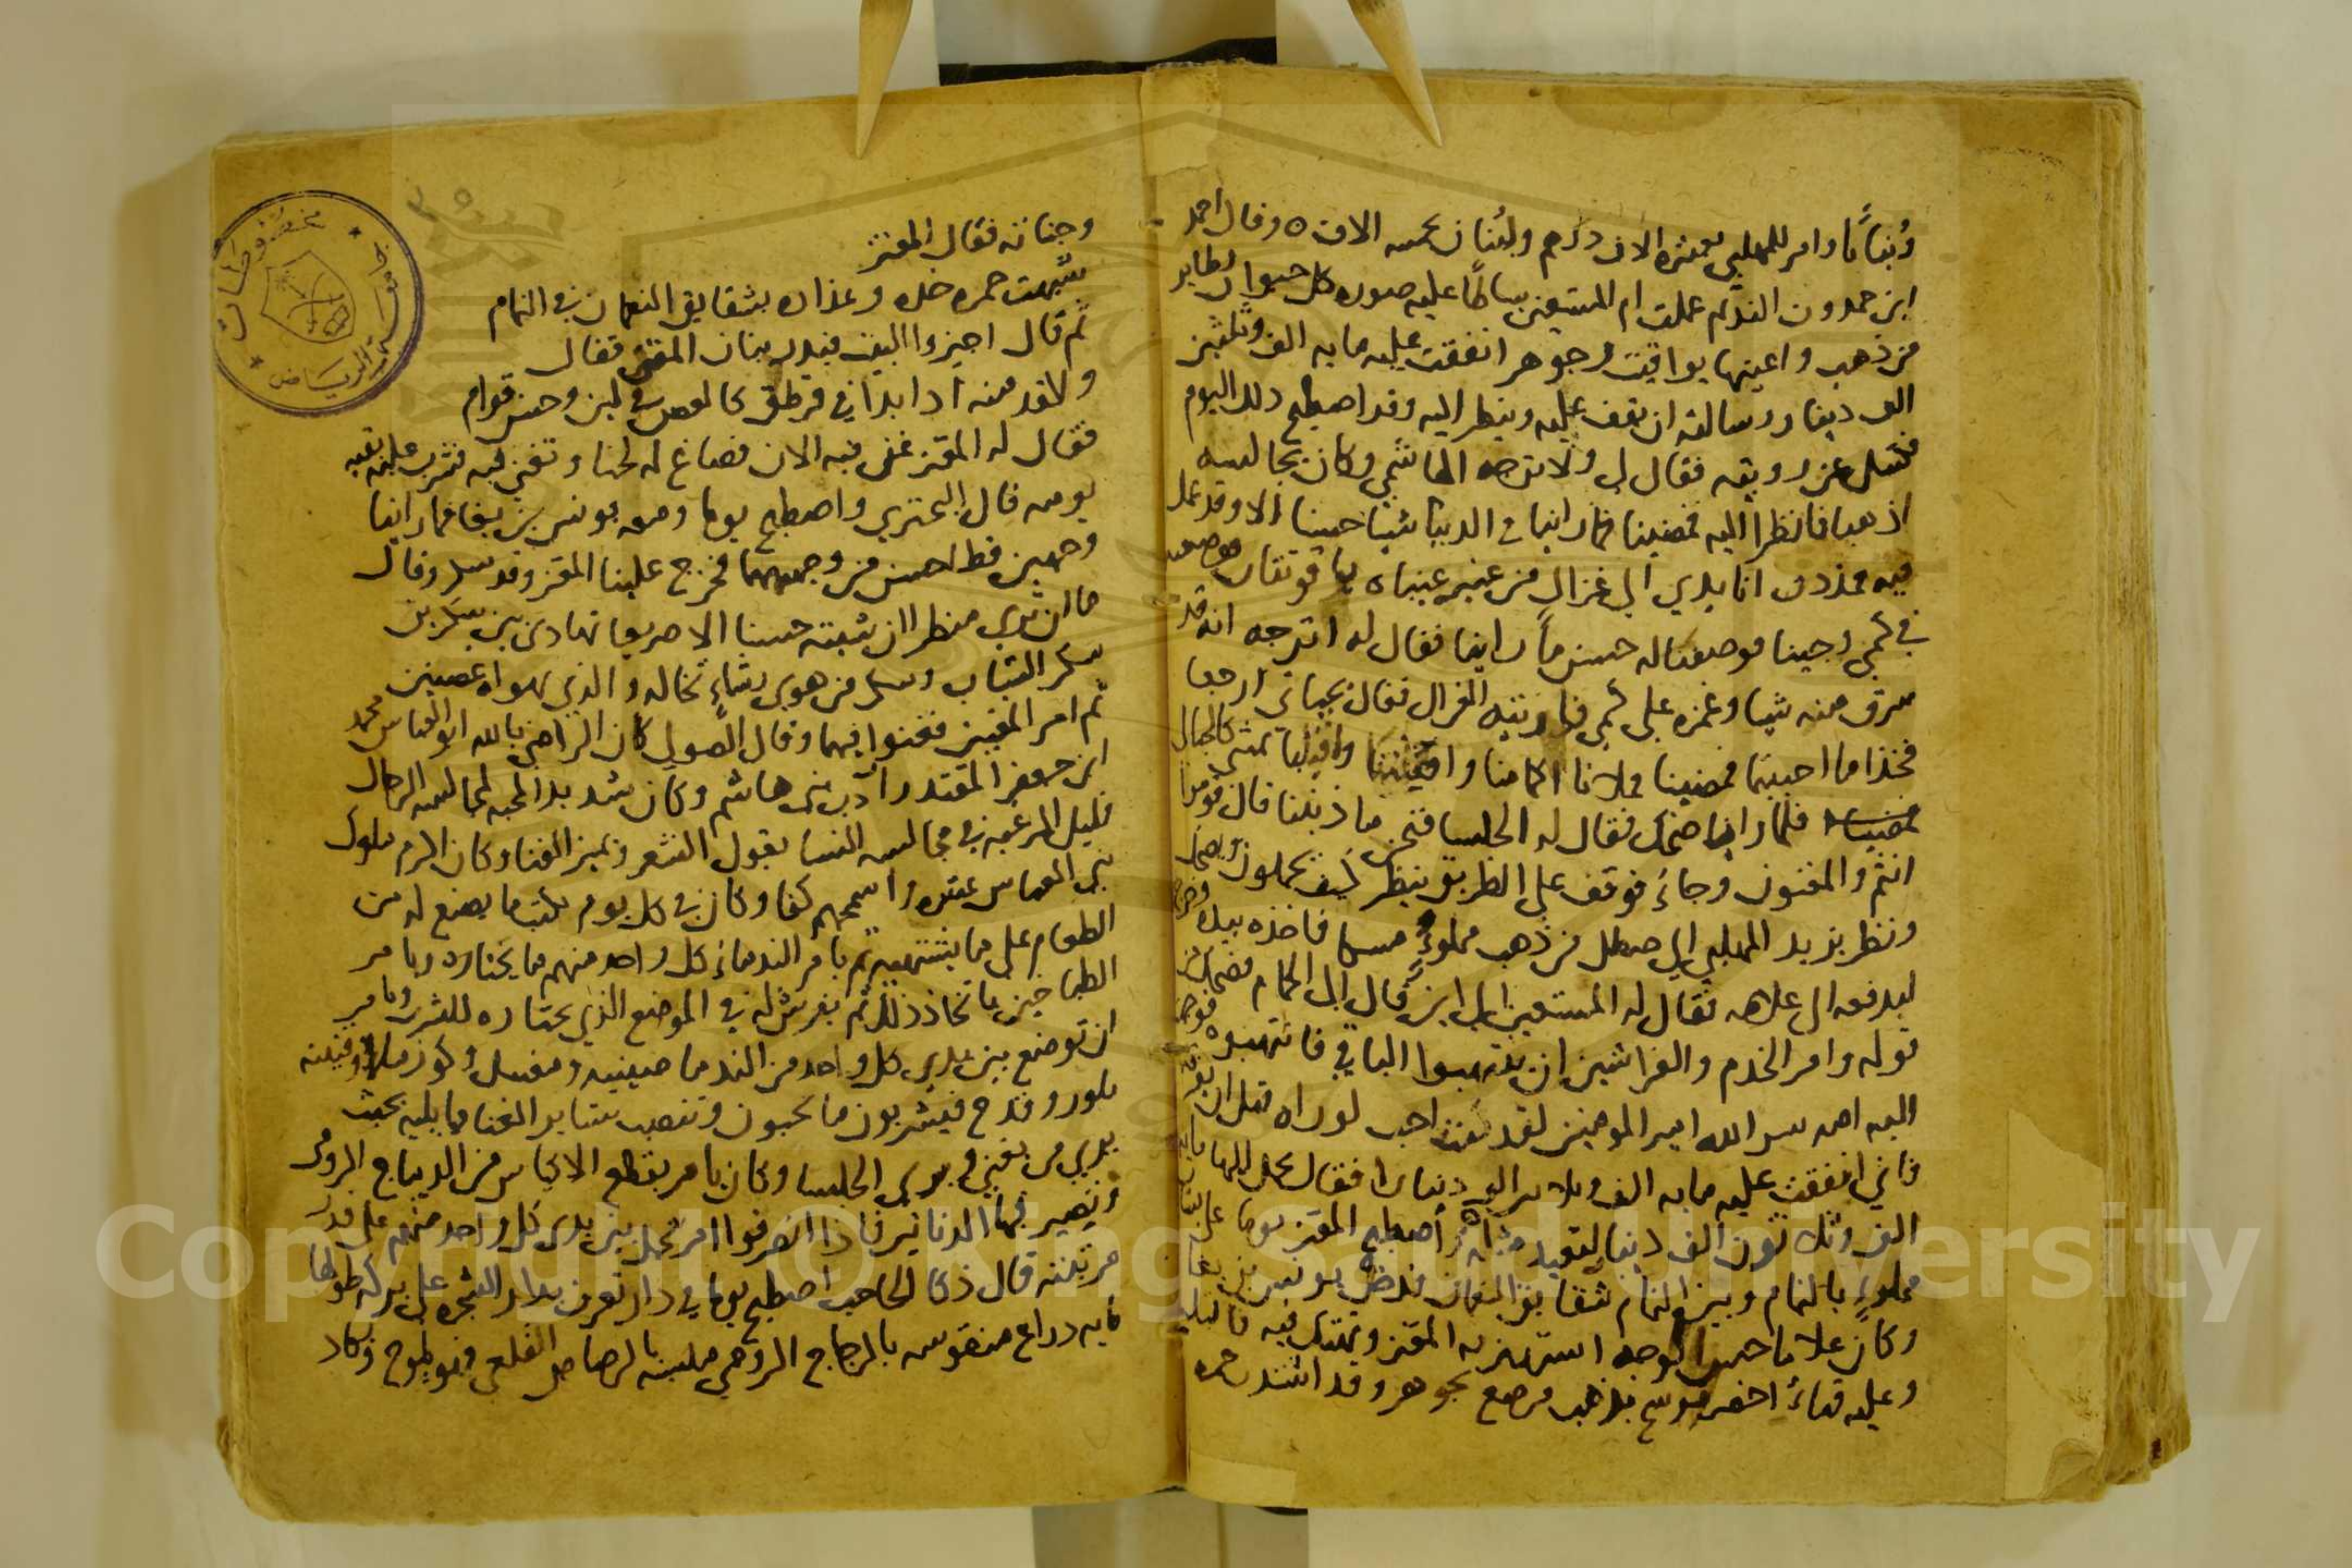 وبنانا وامر للمهلبي بعشرة الاف درهم ولبنان بخمسه الاف ه وقال احمد
ابن حمدون النديم عملت ام المستعين بساطا عليه صوره كل حيوان وطاير
من ذهب واعينها يواقيت وجوهر انفقت عليه مايه الف وثلثين
الف دينار وسالته ان يقف عليه وينظر اليه وقد اصطبح ذلك اليوم
فكسل عن رويته فقال لي ولاترجه الهاشمي وكان يجالسه
اذهبا فانظرا اليه فمضينا فما راينا في الدنيا شيا حسنا الا وقد عمل
فيه فمددت انا يدي الى غزال من عنبر عيناه ياقوتتان فوضعته
في كمي وجينا فوصفنا له حسن ما راينا فقال له اترجه انه قد
سرق منه شيا وغمزه على كمي فاريته الغزال فقال بحياتي ارجعا
فخذا ما احببتما فمضينا فملانا اكمامنا واقبيتنا واقبلنا نمشي كالحبالى
فلما رانا ضحك فقال له الجلسا فنحن ما ذنبنا قال قوموا
انتم والمغنون وجاء فوقف على الطريق ينظر كيف يحملون ويضحك
ونظر يزيد المهلبي الى سطل من ذهب مملوء مسكا فاخذه بيده وخرج
ليدفعه الى غلامه فقال له المستعين الى اين قال الى الحمام فضحك من
قوله وامر الخدم والفراشين ان ينتهبوا الباقي فانتهبوه فوجهت
اليه امه سر الله امير المومنين لقد كنت احب لو راه قبل ان يفرقه
فاني انفقت عليه مايه الف وثلاثين الف دينار فقال يحمل اليها مايه
الف وثلاثون الف دينار لتعيد مثله واصطبح المعتز يوما على بستان
مملوء بالنمام وبين النمام شقايق النعمان فدخل يونس بن بغا
وكان غلاما حسن الوجه استهتر به المعتز وتهتك فيه فاقبل
وعليه قباء اخضر موشح بذهب مرصع بجوهر وقد اشتدت حمره
وجناته فقال المعتز
شبهت حمرة خده وعذاره بشقايق النعمان في النمام
ثم قال اجيزوا البيت فبدر بنان المغني فقال
والقد منه اذا بدا في قرطق كالغصن في لين وحسن قوام
فقال له المعتز غنى فيه الان فصاغ له لحنا وتغنى فيه فشرب عليه بقيه
يومه قال البحتري واصطبح يوما ومعه يونس بن بغا فما راينا
وجهين قط احسن من وجهيهما فخرج علينا المعتز وقد سكر وقال
ما ان ترى منظرا ان شيته حسنا الا صريعا تهادى بين سكرين
سكر الشباب وسكر من هوى رشاء تخاله والذي يهواه غصنين
ثم امر المغنين فغنوا فيهما وقال الصولي كان الراضي بالله ابو العباس محمد
ابن جعفر المقتدر آدب بني هاشم وكان شديد المحبه لمجالسه الرجال
قليل الرغبه في مجالسه النسا يقول الشعر ويميز الغنا وكان اكرم ملوك
بني العباس عشره واسمحهم كفا وكان في كل يوم يكتب ما يصنع له من
الطعام على ما يشتهيه ثم يامر الندماء كل واحد منهم ما يختاره ويامر
الطباخين باتخاذ ذلك ثم يفرش له في الموضع الذي يختاره للشرب ويامر
ان توضع بين يدي كل واحد من الندما صينيه ومغسل وكوز ملاء وقنينه
بلور وقدح فيشربون ما يحبون وتنصب ستاير الغنا مما يليه بحيث
يرى من يغني ويرى الجلسا وكان يامر بقطع الاكياس من الديباج الرومي
وتصير فيها الدنانير فاذا انصرفوا امر تحمل بين يدي كل واحد منهم على قدر
مرتبته قال ذكا الحاجب اصطبح يوما في دار تعرف بدار الشجره على بركه طولها
مايه ذراع منقوشه بالزجاج الرومي ملبسه بالرصاص القلعي وهو يلوح وكاد
مخطوطات
جامعة الرياض
Copyright © King Saud University